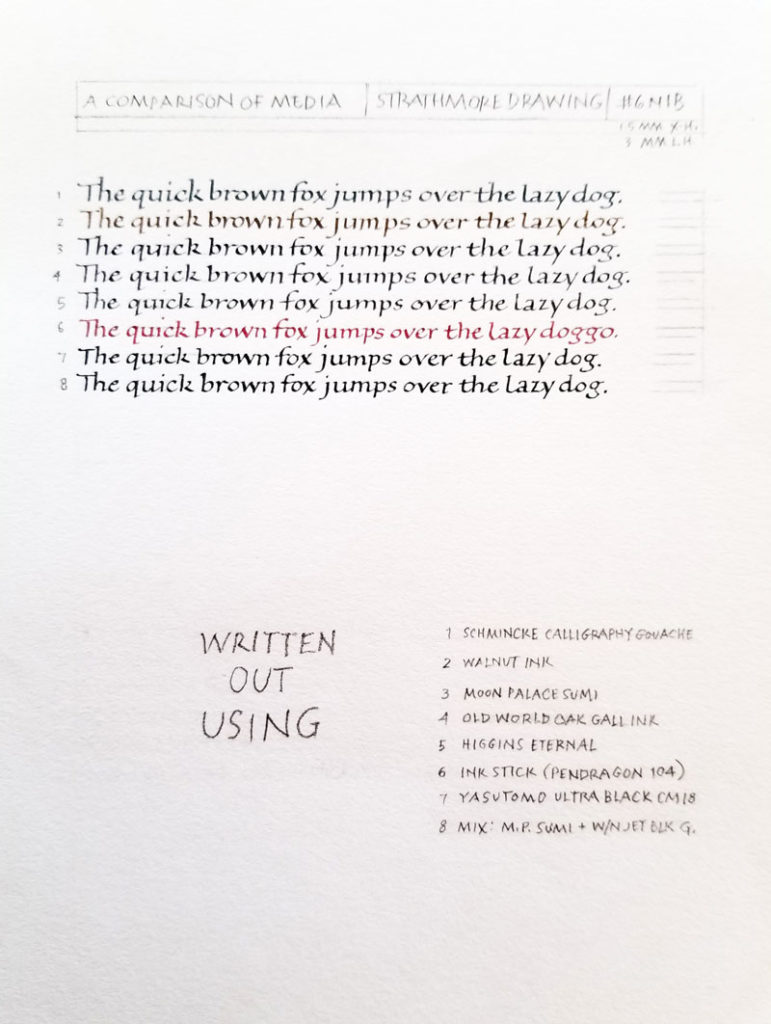 A COMPARISON OF MEDIA | STRATHMORE DRAWING | #6 NIB
1.5 MM X-H.
3 MM L.H.
1 The quick brown fox jumps over the lazy dog.
2 The quick brown fox jumps over the lazy dog.
3 The quick brown fox jumps over the lazy dog.
4 The quick brown fox jumps over the lazy dog.
5 The quick brown fox jumps over the lazy dog.
6 The quick brown fox jumps over the lazy doggo.
7 The quick brown fox jumps over the lazy dog.
8 The quick brown fox jumps over the lazy dog.
WRITTEN
OUT
USING
1 SCHMINCKE CALLIGRAPHY GOUACHE
2 WALNUT INK
3 MOON PALACE SUMI
4 OLD WORLD OAK GALL INK
5 HIGGINS ETERNAL
6 INK STICK (PENDRAGON 104)
7 YASUTOMO ULTRA BLACK CM18
8 MIX: M.P. SUMI + W/N JET BLK G.